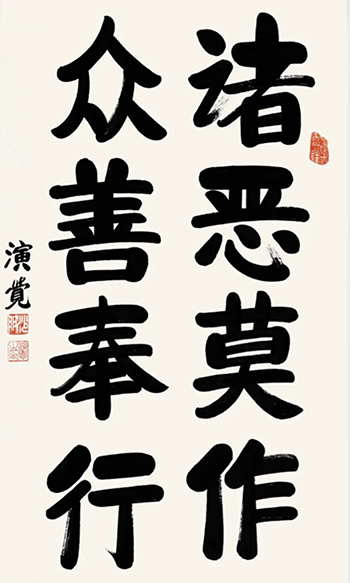 诸恶莫作
众善奉行
演觉